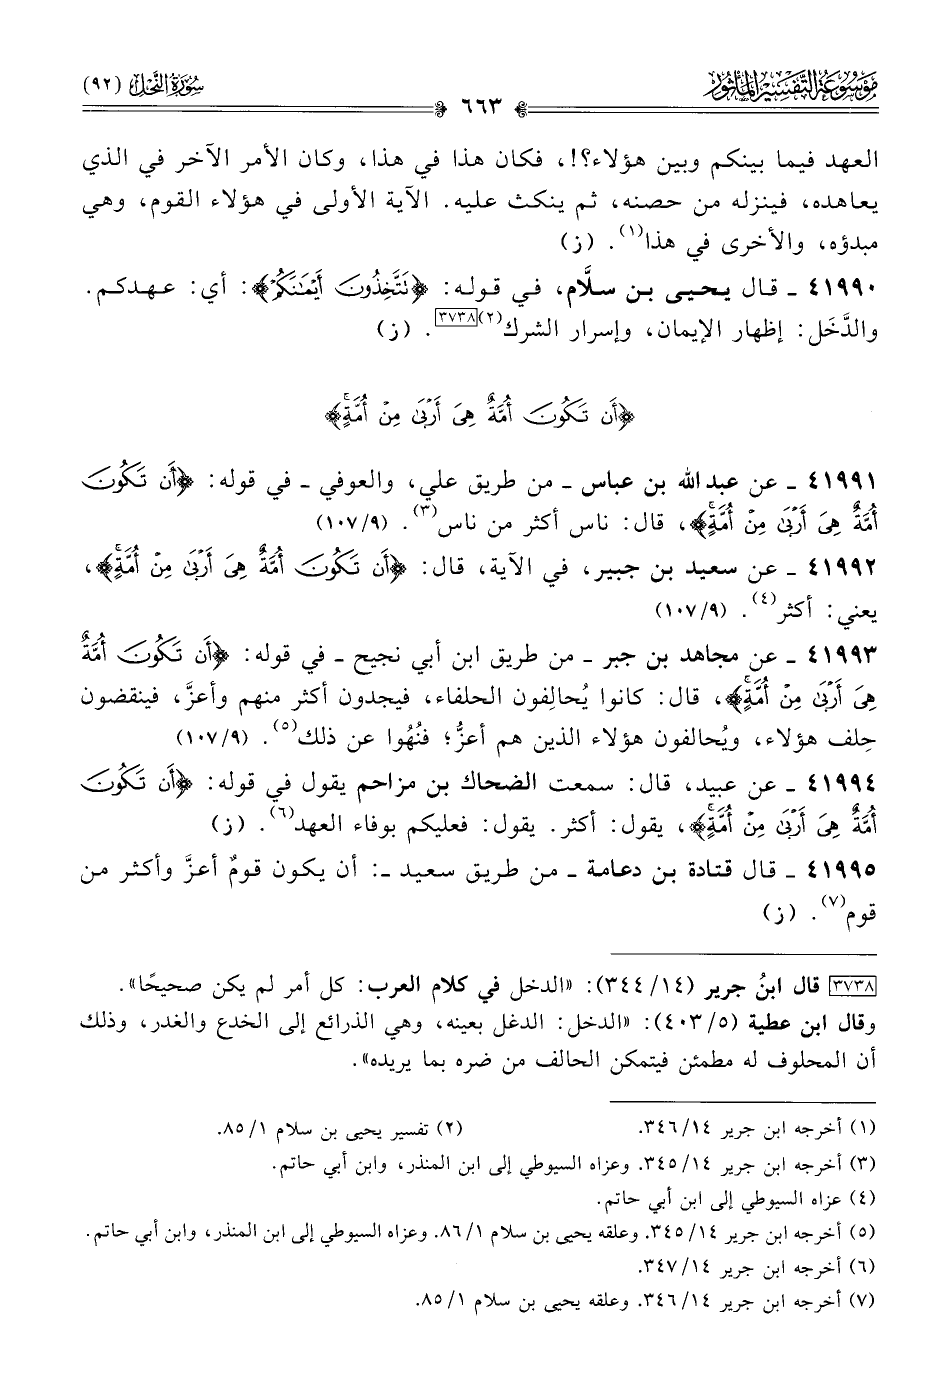 موسوعة التفسير المأثور
سورة النحل (٩٢)
٦٦٣
العهد فيما بينكم وبين هؤلاء؟!، فكان هذا في هذا، وكان الأمر الآخر في الذي
يعاهده، فينزله من حصنه، ثم ينكث عليه. الآية الأولى في هؤلاء القوم، وهي
مبدؤه، والأخرى في هذا(١). (ز)
٤١٩٩٠ ـ قال يحيى بن سلَّام، في قوله: ﴿نَتَّخِذُونَ أَيْمَٰنَكُمْ﴾: أي: عهدكم.
والدَّخَل: إظهار الإيمان، وإسرار الشرك(٢)[٣٧٣٨]. (ز)
﴿أَن تَكُونَ أُمَّةٌ هِىَ أَرْبَىٰ مِنْ أُمَّةٍ﴾
٤١٩٩١ ـ عن عبد الله بن عباس ـ من طريق علي، والعوفي ـ في قوله: ﴿أَن تَكُونَ
أُمَّةٌ هِىَ أَرْبَىٰ مِنْ أُمَّةٍ﴾، قال: ناس أكثر من ناس(٣). (١٠٧/٩)
٤١٩٩٢ ـ عن سعيد بن جبير، في الآية، قال: ﴿أَن تَكُونَ أُمَّةٌ هِىَ أَرْبَىٰ مِنْ أُمَّةٍ﴾،
يعني: أكثر(٤). (١٠٧/٩)
٤١٩٩٣ ـ عن مجاهد بن جبر ـ من طريق ابن أبي نجيح ـ في قوله: ﴿أَن تَكُونَ أُمَّةٌ
هِىَ أَرْبَىٰ مِنْ أُمَّةٍ﴾، قال: كانوا يُحالِفون الحلفاء، فيجدون أكثر منهم وأعزَّ، فينقضون
حِلف هؤلاء، ويُحالفون هؤلاء الذين هم أعزُّ؛ فنُهُوا عن ذلك(٥). (١٠٧/٩)
٤١٩٩٤ ـ عن عبيد، قال: سمعت الضحاك بن مزاحم يقول في قوله: ﴿أَن تَكُونَ
أُمَّةٌ هِىَ أَرْبَىٰ مِنْ أُمَّةٍ﴾، يقول: أكثر. يقول: فعليكم بوفاء العهد(٦). (ز)
٤١٩٩٥ ـ قال قتادة بن دعامة ـ من طريق سعيد ـ: أن يكون قومٌ أعزَّ وأكثر من
قوم(٧). (ز)
[٣٧٣٨] قال ابنُ جرير (٣٤٤/١٤): «الدخل في كلام العرب: كل أمر لم يكن صحيحًا».
وقال ابن عطية (٤٠٣/٥): «الدخل: الدغل بعينه، وهي الذرائع إلى الخدع والغدر، وذلك
أن المحلوف له مطمئن فيتمكن الحالف من ضره بما يريده».
(١) أخرجه ابن جرير ٣٤٦/١٤. (٢) تفسير يحيى بن سلام ٨٥/١.
(٣) أخرجه ابن جرير ٣٤٥/١٤. وعزاه السيوطي إلى ابن المنذر، وابن أبي حاتم.
(٤) عزاه السيوطي إلى ابن أبي حاتم.
(٥) أخرجه ابن جرير ٣٤٥/١٤. وعلقه يحيى بن سلام ٨٦/١. وعزاه السيوطي إلى ابن المنذر، وابن أبي حاتم.
(٦) أخرجه ابن جرير ٣٤٧/١٤.
(٧) أخرجه ابن جرير ٣٤٦/١٤. وعلقه يحيى بن سلام ٨٥/١.